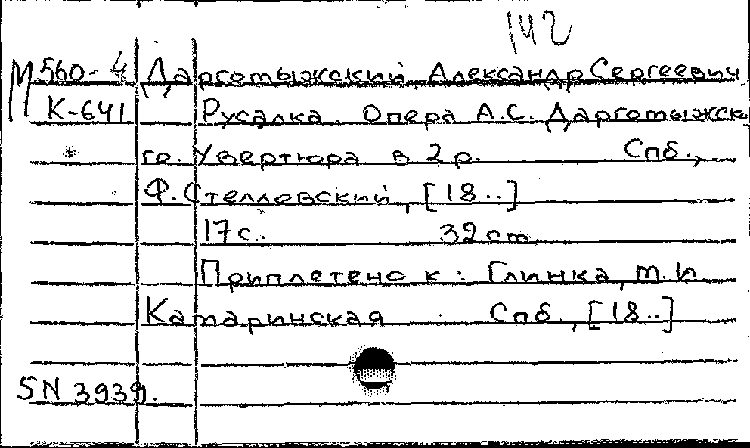 142
М 560-4 Дарготыжский, Александр Сергеевич
К-641 Русалка. Опера А.С. Дарготыжск
* гр. Увертюра в 2 р. Спб.,
Ф. Стелловский, [18..]
17 с. 32 cm
Приплетено к: Глинка, М.И.
Камаринская Спб., [18..]
SN 3939.